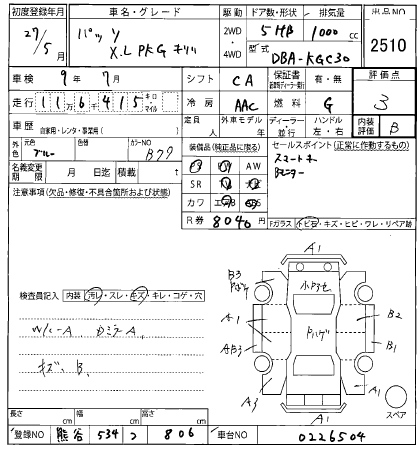 初度登録年月 車名・グレード 駆動 ドア数・形状 排気量 出品NO
27/5月 パッソ 2WD 4WD 5HB 1000cc 2510
X.L PKG キリリ 型式 DBA-KGC30
車検 9年7月 シフト CA 保証書 有・無 評価点
走行 116415 キロ・マイル 冷房 AAC 燃料 G 3
車歴 自家用・レンタ・事業用( ) 定員 人 外車モデル 年 ディーラー 並行 ハンドル 左・右 内装評価 B
外色 元色 ブルー 色替 カラーNO B79 装備品(純正品に限る) セールスポイント(正常に作動するもの)
名義変更期限 月 日迄 積載 t AW スマートキー
SR
注意事項(欠品・修復・不具合箇所および状態) カワ エアB ABS
R券 8040 Fガラス トビ石・キズ・ヒビ・ワレ・リペア跡
A1
B3 小アセ
検査員記入 内装 汚レ・スレ・キズ・キレ・コゲ・穴
A1 B2
W/C-A
B1
キズ B
A3 A1
A1 スペア
長さ cm 幅 cm 高さ cm
登録NO 熊谷 534 つ 806 車台NO 0226504